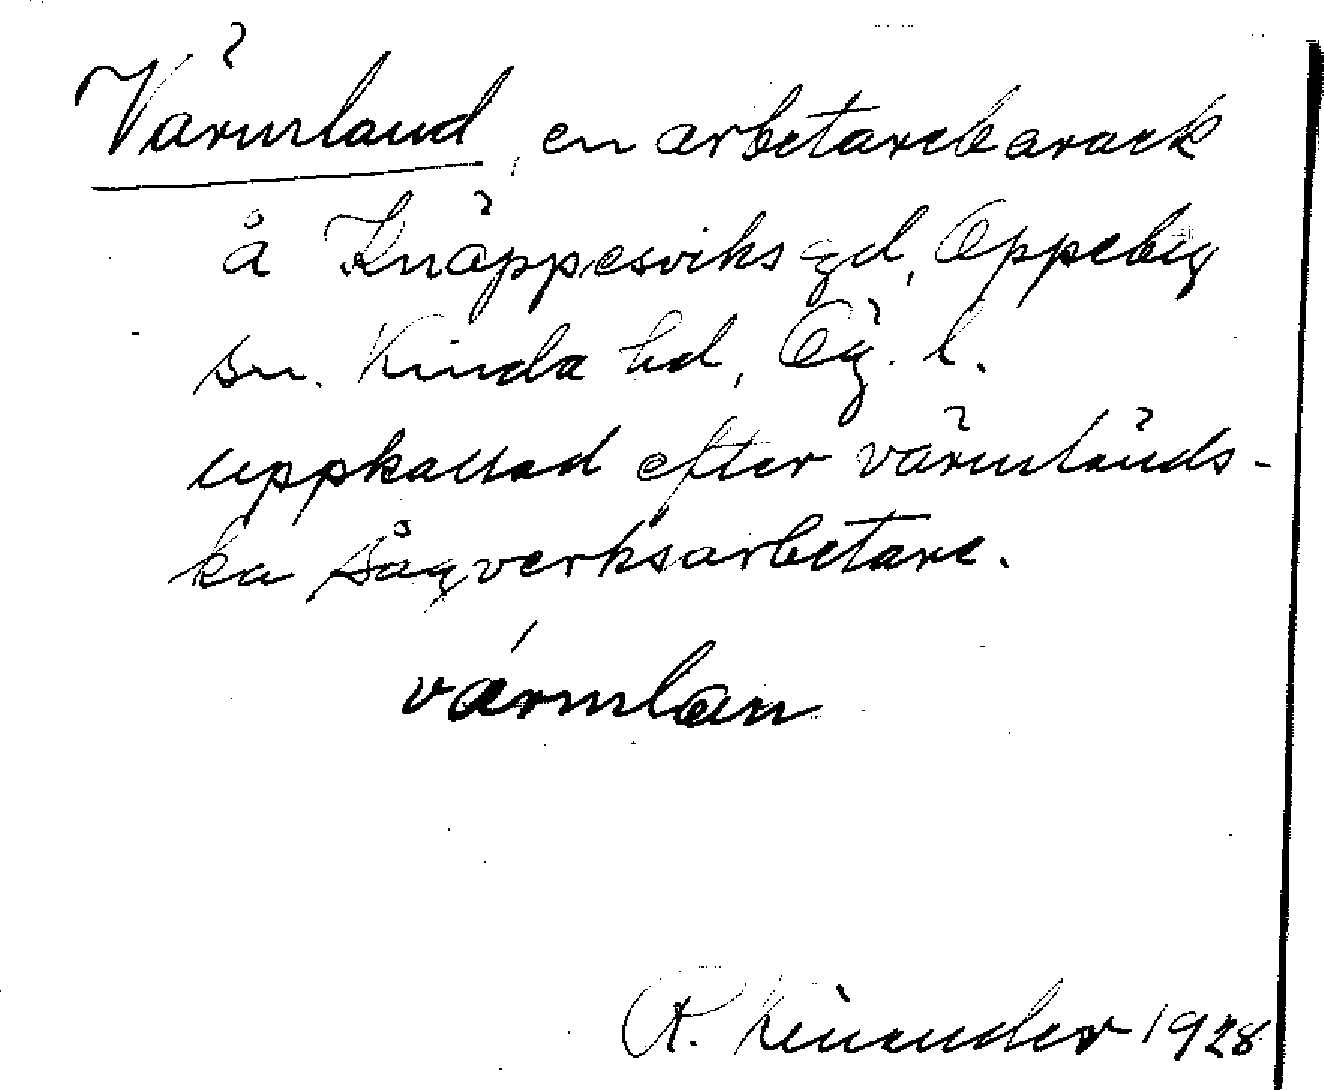 Värmland, en arbetarebarack
å Knäppesviks gd, Oppeby
sn. Kinda hd, Ög. l.
uppkallad efter värmländs-
ka sågverksarbetare.
värmlan
R. 1928